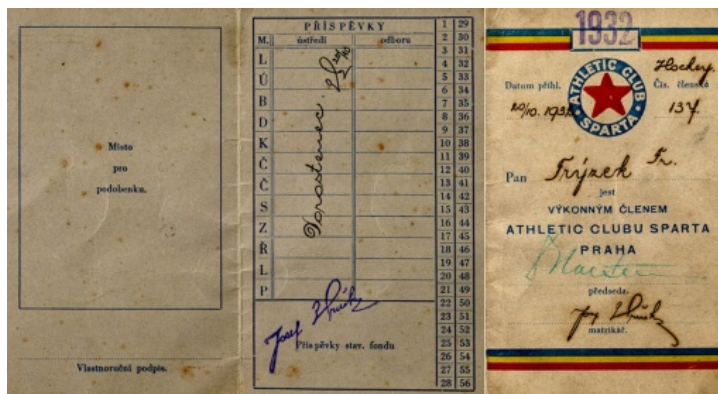 Místo
pro
podobenku.
Vlastnoruční podpis.
PŘÍSPĚVKY
M. ústředí odboru
L
Ú
B
D
K
Č
Č
S
Z
Ř
L
P
Dorostenec.
Josef
Příspěvky stav. fondu
1 29
2 30
3 31
4 32
5 33
6 34
7 35
8 36
9 37
10 38
11 39
12 40
13 41
14 42
15 43
16 44
17 45
18 46
19 47
20 48
21 49
22 50
23 51
24 52
25 53
26 54
27 55
28 56
1932
Hockey.
Datum přihl. Čís. členské
ATHLETIC CLUB
SPARTA
20/10. 1932 137.
Pan Frýzek Fr.
jest
VÝKONNÝM ČLENEM
ATHLETIC CLUBU SPARTA
PRAHA
předseda.
matrikář.